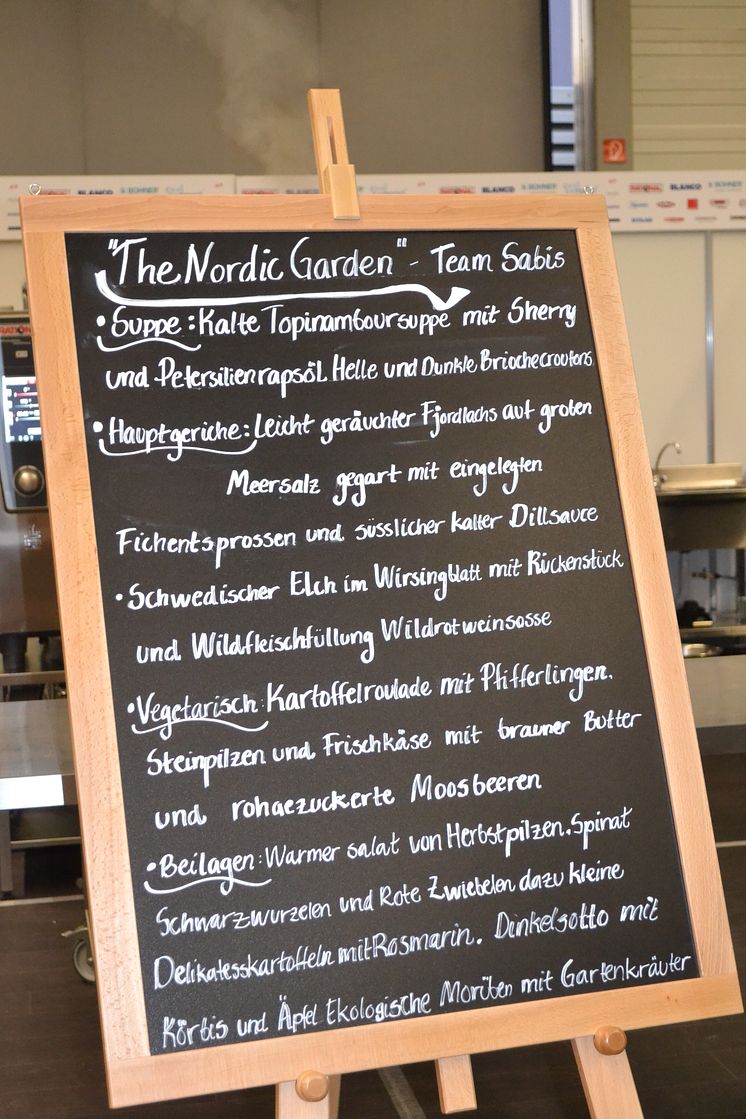 "The Nordic Garden" - Team Sabis
• Suppe: Kalte Topinamboursuppe mit Sherry
und Petersilienrapsöl Helle und Dunkle Briochecroutons
• Hauptgeriche: Leicht geräuchter Fjordlachs auf groten
Meersalz gegart mit eingelegten
Fichentsprossen und süsslicher kalter Dillsauce
• Schwedischer Elch im Wirsingblatt mit Rückenstück
und Wildfleischfüllung Wildrotweinsosse
• Vegetarisch: Kartoffelroulade mit Pfifferlingen.
Steinpilzen und Frischkäse mit brauner Butter
und rohaezuckerte Moosbeeren
• Beilagen: Warmer salat von Herbstpilzen. Spinat
Schwarzwurzelen und Rote Zwiebelen dazu kleine
Delikatesskartoffeln mit Rosmarin. Dinkelsotto mit
Körbis und Äpfel Ekologische Morüben mit Gartenkräuter
BLANCO
BLANCO
BLANCO